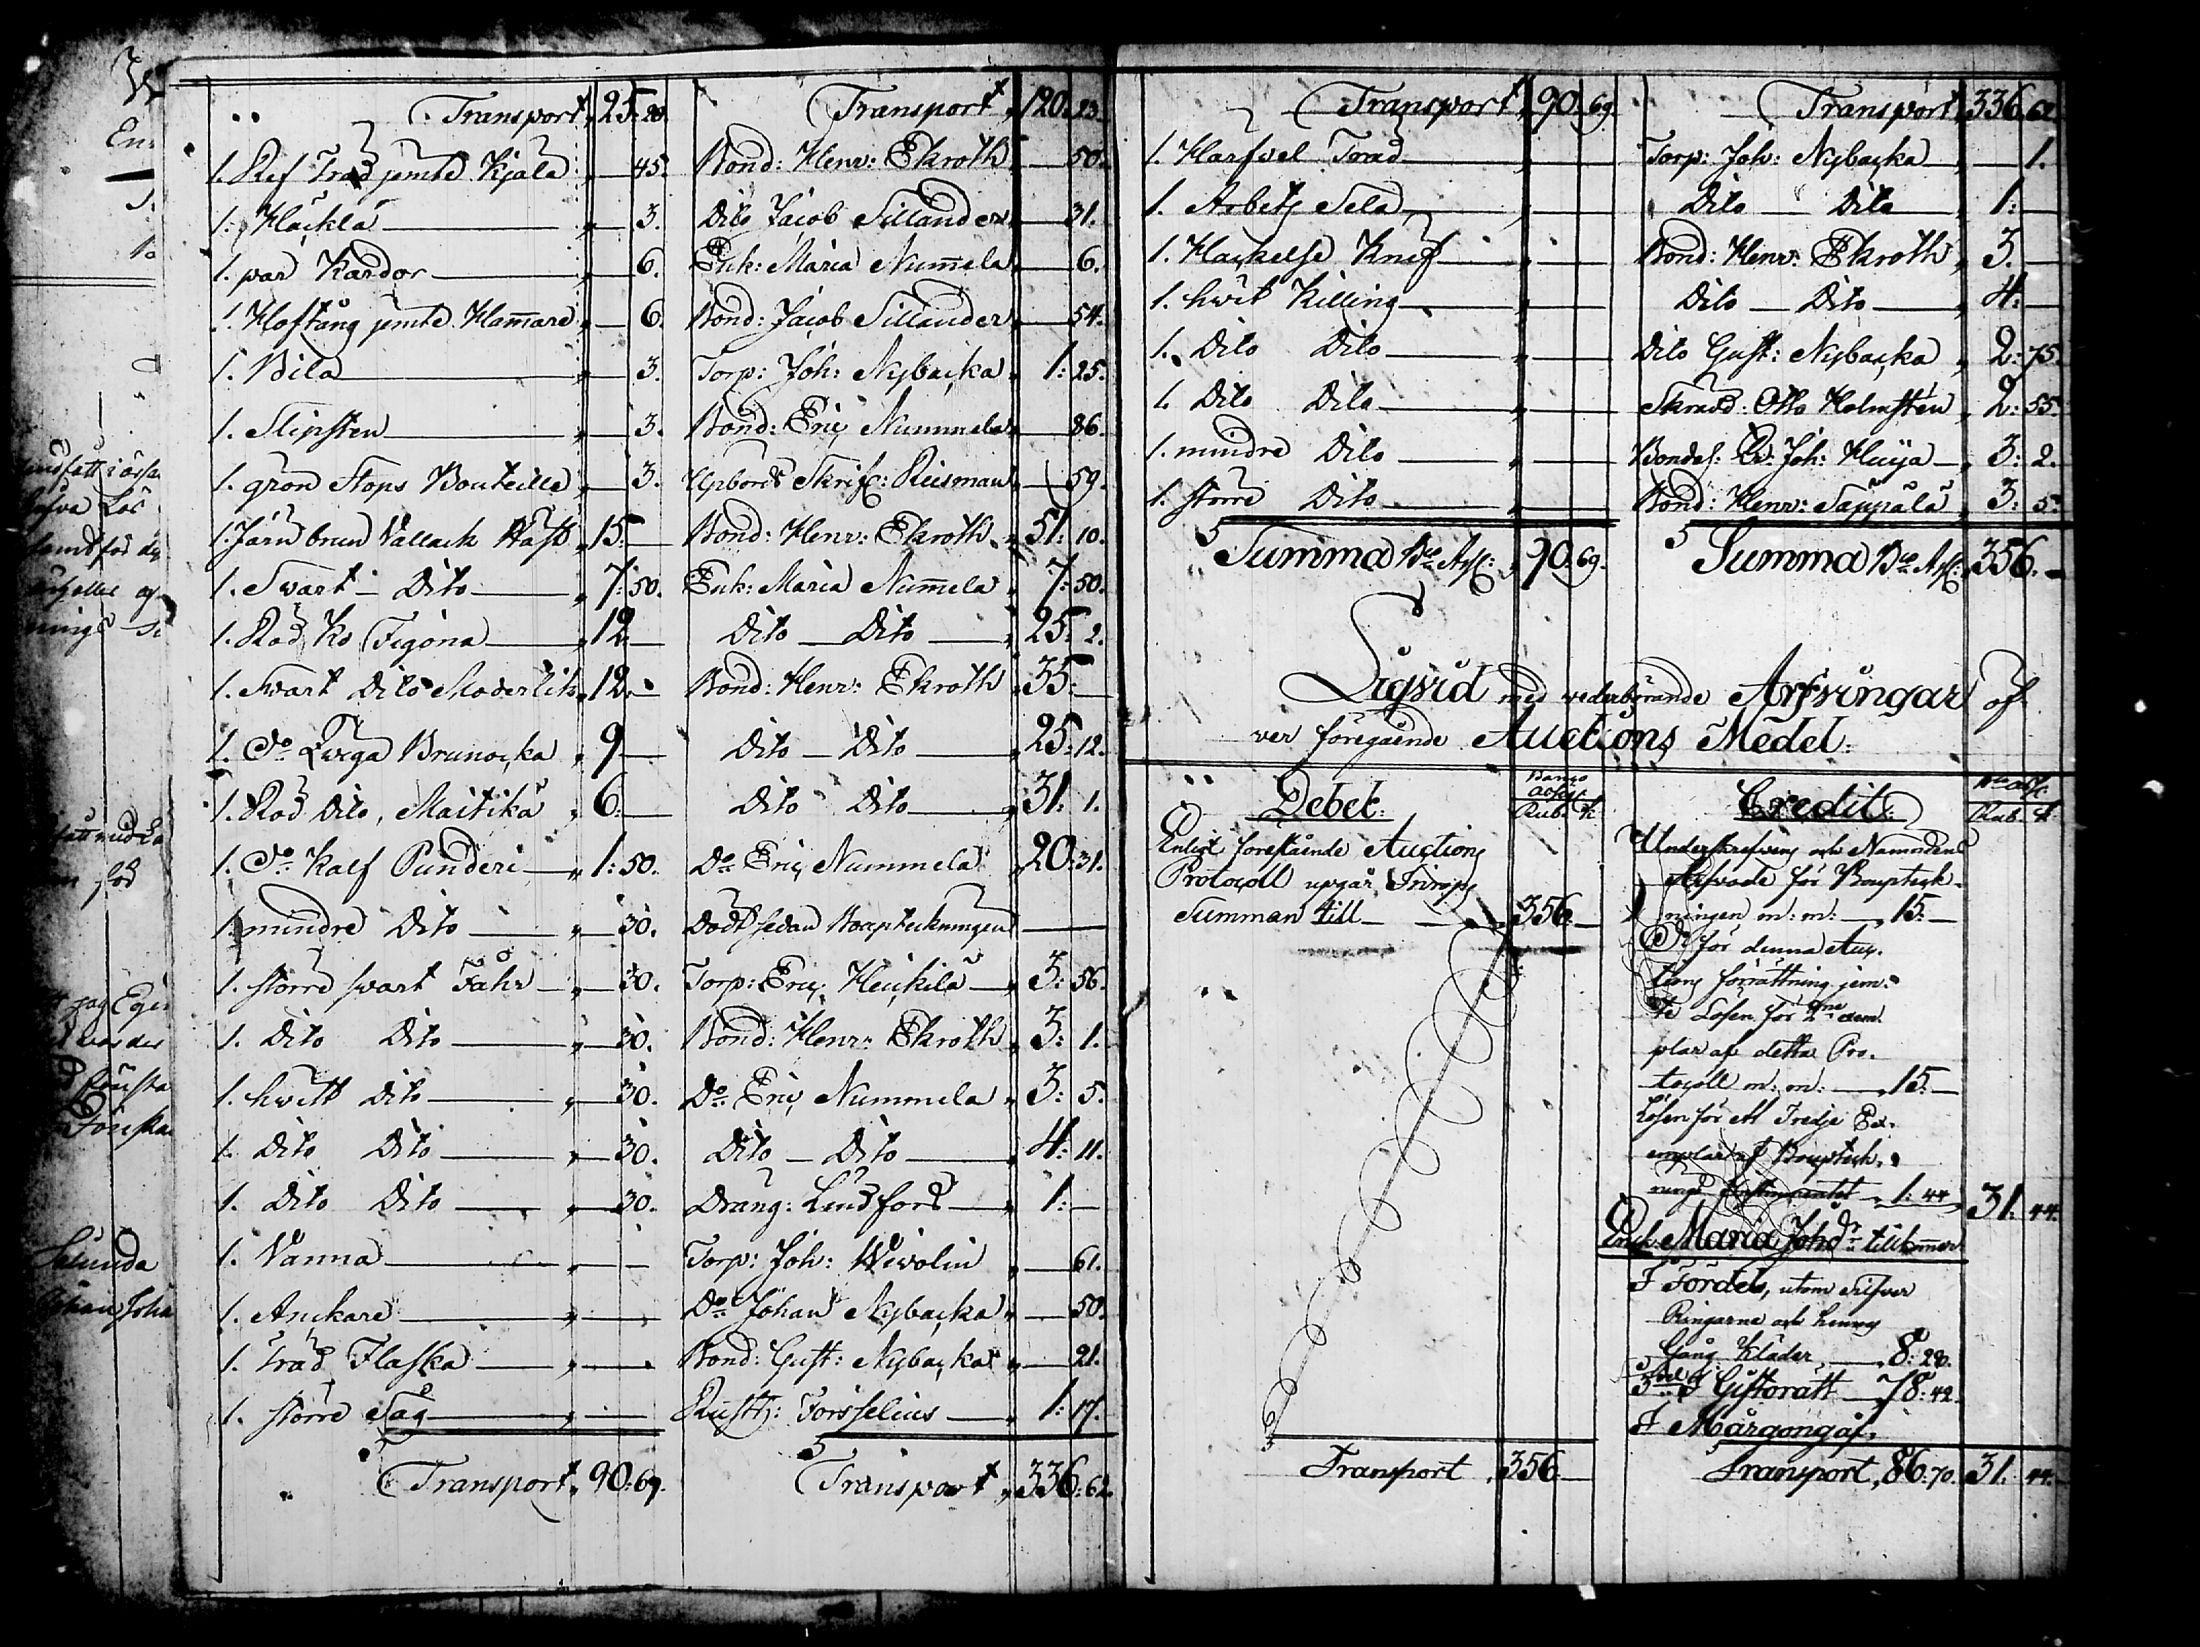 Transport 25. 20. Transport 120. 23.
1. Ref Träd jemte Kjäla 45. Bond: Henr: Ekroth 50.
1. Häckla 3. Dito Jacob Sillander 31.
1. par Kardor 6. Enk: Maria Num̅ela 6.
1. Hoftång jemte Ham̅are 6. Bond: Jacob Sillander 54.
1. Bila 3. Torp: Joh: Nybacka 1: 25.
1. Slipsten 3. Bond: Eric Nummela 86.
1. grön Stops Bouteille 3. Upbörds Skrif: Riisman 59.
1. Järn brun Vallack Häst 15. Bond: Henr: Ekroth 51: 10.
1. Swart Dito 7: 50. Enk: Maria Num̅ela 7: 50.
1. Röd Ko Figona 12 Dito Dito 25: 2.
1. Swart Dito Moderlik 12. Bond: Henr: Ekroth 35:
1. Do Qviga Brunacka 9 Dito Dito 25: 12.
1. Röd Dito, Maitika 6. Dito Dito 31: 1.
1. Do Kalf Punderi 1: 50. Do Eric Nummela 20: 31.
1. mindre Dito 30. Dödt sedan Boupteckningen
1. större svart Fåhr 30. Torp: Eric Heickilä 3: 56.
1. Dito Dito 30. Bond: Henr: Ekroth 3: 1.
1. hvitt Dito 30. Do Eric Nummela 3: 5.
1. Dito Dito 30. Dito Dito 4: 11.
1. Dito Dito 30. Dräng: Lindfors 1:
1. Vanna Torp: Joh: Wiwolin 61.
1. Anckare Do Johan Nybacka 50.
1. träd Flaska Bond: Gust: Nybacka 21.
1. större Såg Rusth: Forsselius 1: 17.
Transport 90: 69. Transport 336: 62.
Transport 90. 69. Transport 336. 62.
1. Harfvel Torp: Joh: Nybacka 1.
1. Arbets Sela Dito Dito 1:
1. Hackelse Knif Bond: Henr: Ekroth 3.
1. hwit Killing Dito Dito 4:
1. Dito Dito Dito Gust: Nybacka 2: 75.
1. Dito Dito Skrädd: Otto Holmstén 2: 55.
1. mindre Dito Bondes: Joh: Huija 3: 2.
1. större Dito Bond: Henr: Sappälä 3: 5.
Summa Bco Ass: 90. 69. Summa Bco Ass: 356.
Liqvid med wederbörande Arfvingar öf
ver föregående Auctions Medel:
Debet: Banco Assig: Rub. K Credit: Bco Ass: Rub. K
Enligt förestående Auctions
Protocoll upgår Inrops
Summan till 356.
Underskrefvens och Nämndens
Arfvode för Boupteck-
ningen m: m: 15.
Do för denna Auc-
tions förrättning jem-
te Lösen för 2ne exem-
plar af detta Pro-
tocoll m: m: 15.
Lösen för ett Tredje Ex-
emplar af Boupteck-
nings Instrumentet 1: 44 31: 44.
Enk: Maria Johdr tillkom̅er
I Fördel, utom Silfver
Ringarne och hennes
Gång Kläder 8: 28.
3del i Giftorätt 78: 42.
I Morgongåf,
Transport 356 Transport 86: 70. 31: 44.